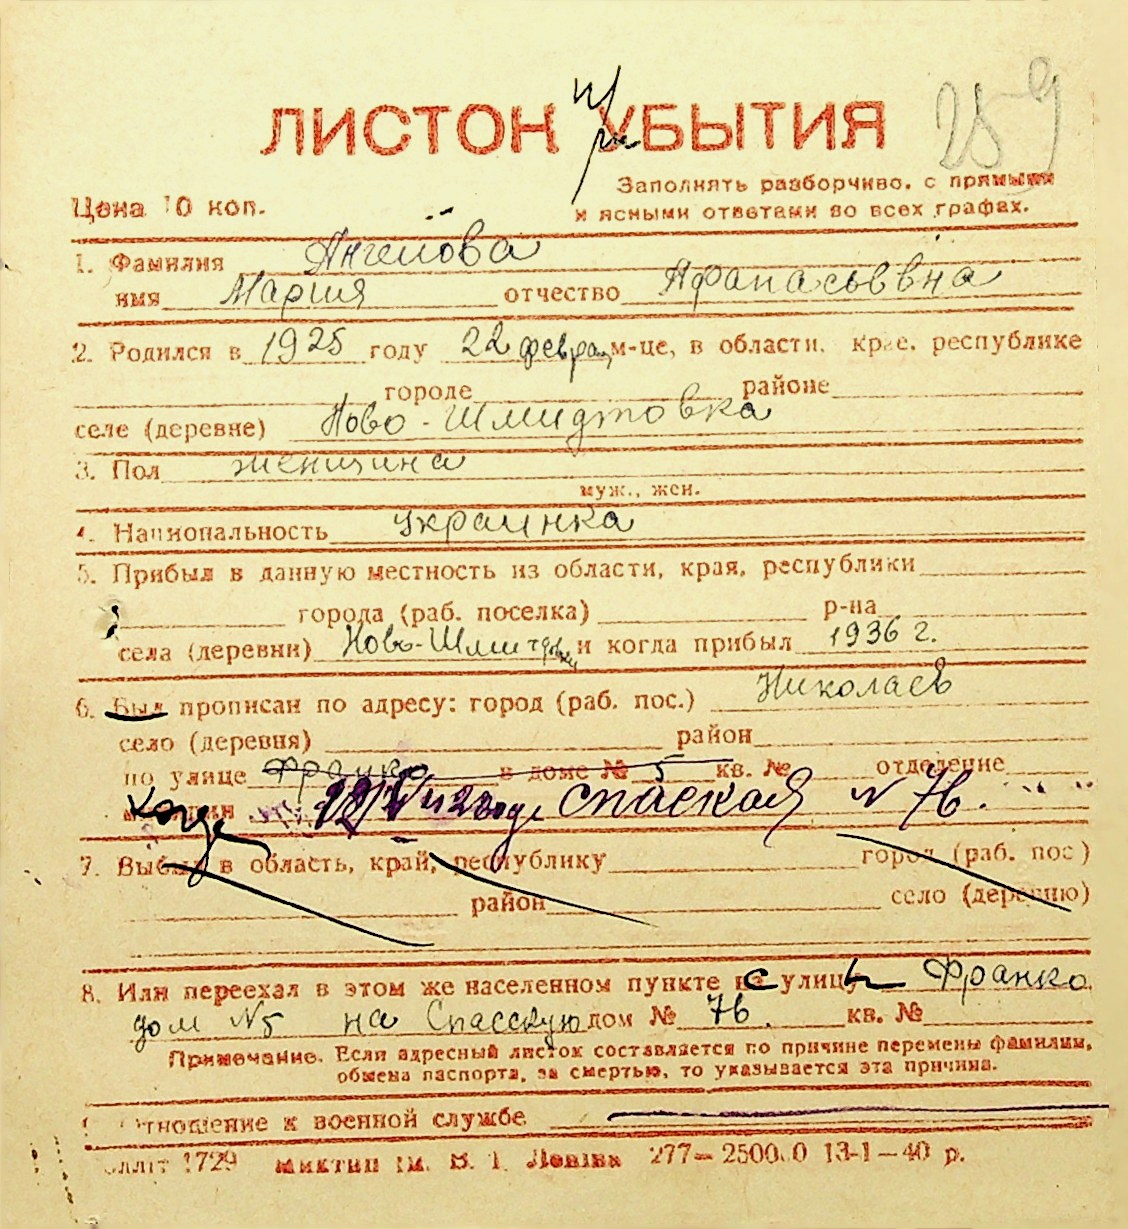 ЛИСТОК УБЫТИЯ
при
289
Цена 10 коп.
Заполнять разборчиво, с прямыми
и ясными ответами во всех графах.
1. Фамилия Ангелова
имя Мария отчество Афанасьевна
2. Родился в 1925 году 22 феврал м-це, в области, крае, республике
городе районе
селе (деревне) Ново-Шмидтовка
3. Пол женщина
муж., жен.
4. Национальность украинка
5. Прибыл в данную местность из области, края, республики
города (раб. поселка) р-на
села (деревни) Ново-Шмитдовки и когда прибыл 1936 г.
6. Был прописан по адресу: город (раб. пос.) Николаев
село (деревня) район
по улице Франко в доме № 5 кв. № отделение
милиции когда 42 года Спаская N 76.
7. Выбыл в область, край, республику город (раб. пос)
район село (деревню)
8. Или переехал в этом же населенном пункте с улицы Франко
дом N5 на Спасскую дом № 76. кв. №
Примечание. Если адресный листок составляется по причине перемены фамилии,
обмена паспорта, за смертью, то указывается эта причина.
Отношение к военной службе
1729 277—2500 0 13-1—40 р.